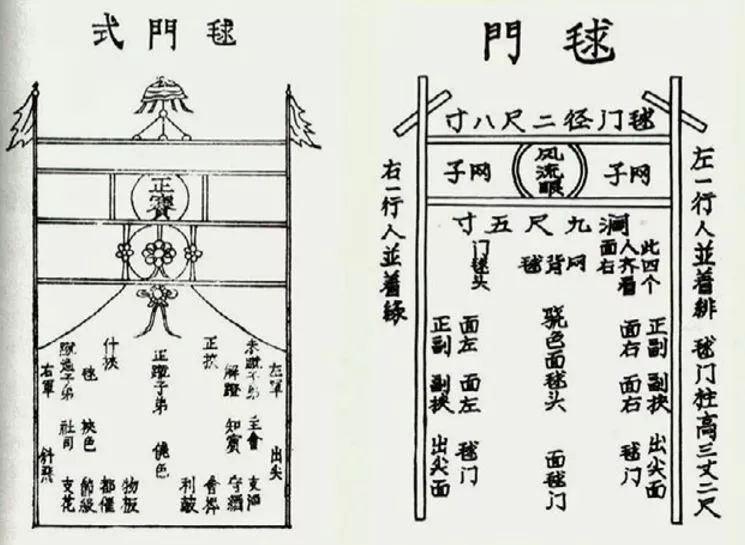 毬門式
正賓
左軍 出尖
子弟 主會 支酒
解蹬 知賓 守酒
正挾
正蹴子弟
什挾
都催
毬 挾色 節級
子弟 社司 支花
右軍
毬門
毬门径二尺八寸
网子 风流眼 网子
九尺五寸
左一行人並着緋 毬门柱高三丈二尺
此四个
人齐看
面右
网背毬
门毬头
正副 副挟 出尖面
面右 面右 毬门
骁色面毬头 面毬门
面左 面左 毬门
正副 副挟 出尖面
右一行人並着綠